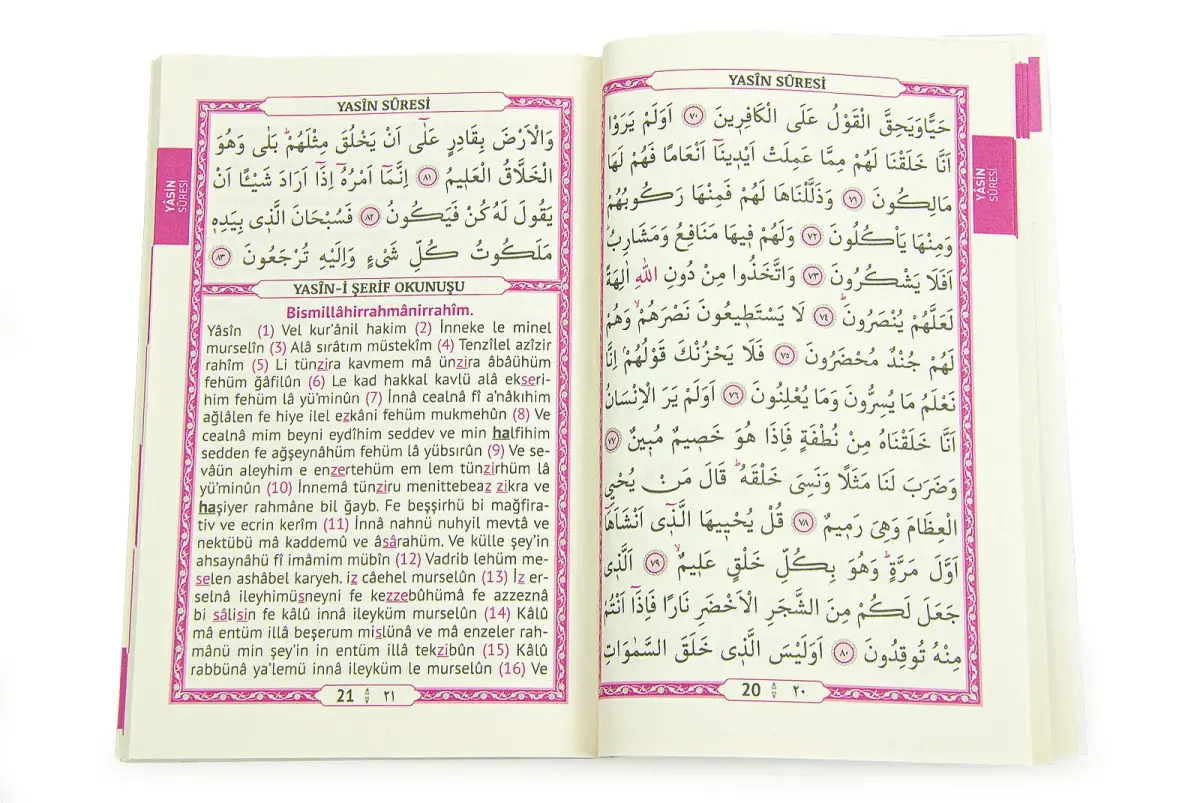 YASİN SÛRESİ
حَيًّا وَيَحِقَّ الْقَوْلُ عَلَى الْكَافِرٖينَ ﴿٧٠﴾ اَوَلَمْ يَرَوْا
اَنَّا خَلَقْنَا لَهُمْ مِمَّا عَمِلَتْ اَيْدٖينَٓا اَنْعَامًا فَهُمْ لَهَا
مَالِكُونَ ﴿٧١﴾ وَذَلَّلْنَاهَا لَهُمْ فَمِنْهَا رَكُوبُهُمْ
وَمِنْهَا يَاْكُلُونَ ﴿٧٢﴾ وَلَهُمْ فٖيهَا مَنَافِعُ وَمَشَارِبُ
اَفَلَا يَشْكُرُونَ ﴿٧٣﴾ وَاتَّخَذُوا مِنْ دُونِ اللّٰهِ اٰلِهَةً
لَعَلَّهُمْ يُنْصَرُونَ ﴿٧٤﴾ لَا يَسْتَطٖيعُونَ نَصْرَهُمْ وَهُمْ
لَهُمْ جُنْدٌ مُحْضَرُونَ ﴿٧٥﴾ فَلَا يَحْزُنْكَ قَوْلُهُمْ اِنَّا
نَعْلَمُ مَا يُسِرُّونَ وَمَا يُعْلِنُونَ ﴿٧٦﴾ اَوَلَمْ يَرَ الْاِنْسَانُ
اَنَّا خَلَقْنَاهُ مِنْ نُطْفَةٍ فَاِذَا هُوَ خَصٖيمٌ مُبٖينٌ ﴿٧٧﴾
وَضَرَبَ لَنَا مَثَلًا وَنَسِىَ خَلْقَهُ قَالَ مَنْ يُحْيِى
الْعِظَامَ وَهِىَ رَمٖيمٌ ﴿٧٨﴾ قُلْ يُحْيٖيهَا الَّذٖٓى اَنْشَاَهَٓا
اَوَّلَ مَرَّةٍ وَهُوَ بِكُلِّ خَلْقٍ عَلٖيمٌ ﴿٧٩﴾ اَلَّذٖى
جَعَلَ لَكُمْ مِنَ الشَّجَرِ الْاَخْضَرِ نَارًا فَاِذَٓا اَنْتُمْ
مِنْهُ تُوقِدُونَ ﴿٨٠﴾ اَوَلَيْسَ الَّذٖى خَلَقَ السَّمٰوَاتِ
20 ٢٠
YÂSİN
SÛRESİ
YASİN SÛRESİ
وَالْاَرْضَ بِقَادِرٍ عَلٰٓى اَنْ يَخْلُقَ مِثْلَهُمْ بَلٰى وَهُوَ
الْخَلَّاقُ الْعَلٖيمُ ﴿٨١﴾ اِنَّمَٓا اَمْرُهُٓ اِذَٓا اَرَادَ شَيْـًٔا اَنْ
يَقُولَ لَهُ كُنْ فَيَكُونُ ﴿٨٢﴾ فَسُبْحَانَ الَّذٖى بِيَدِهٖ
مَلَكُوتُ كُلِّ شَىْءٍ وَاِلَيْهِ تُرْجَعُونَ ﴿٨٣﴾
YASÎN-İ ŞERIF OKUNUŞU
Bismillâhirrahmânirrahîm.
Yâsîn (1) Vel kur'ânil hakim (2) İnneke le minel
murselîn (3) Alâ sırâtım müstekîm (4) Tenzîlel azîzir
rahîm (5) Li tünzira kavmem mâ ünzira âbâühüm
fehüm ğâfilûn (6) Le kad hakkal kavlü alâ ekseri-
him fehüm lâ yü'minûn (7) İnnâ cealnâ fî a'nâkıhim
ağlâlen fe hiye ilel ezkâni fehüm mukmehûn (8) Ve
cealnâ mim beyni eydîhim seddev ve min halfihim
sedden fe ağşeynâhüm fehüm lâ yübsırûn (9) Ve se-
vâün aleyhim e enzertehüm em lem tünzirhüm lâ
yü'minûn (10) İnnemâ tünziru menittebeaz zikra ve
haşiyer rahmâne bil ğayb. Fe beşşirhü bi mağfira-
tiv ve ecrin kerîm (11) İnnâ nahnü nuhyil mevtâ ve
nektübü mâ kaddemû ve âsârahüm. Ve külle şey'in
ahsaynâhü fî imâmim mübîn (12) Vadrib lehüm me-
selen ashâbel karyeh. iz câehel murselûn (13) İz er-
selnâ ileyhimüsneyni fe kezzebûhümâ fe azzeznâ
bi sâlisin fe kâlû innâ ileyküm murselûn (14) Kâlû
mâ entüm illâ beşerum mislünâ ve mâ enzeler rah-
mânü min şey'in in entüm illâ tekzibûn (15) Kâlû
rabbünâ ya'lemü innâ ileyküm le murselûn (16) Ve
21 ٢١
YÂSİN
SÛRESİ